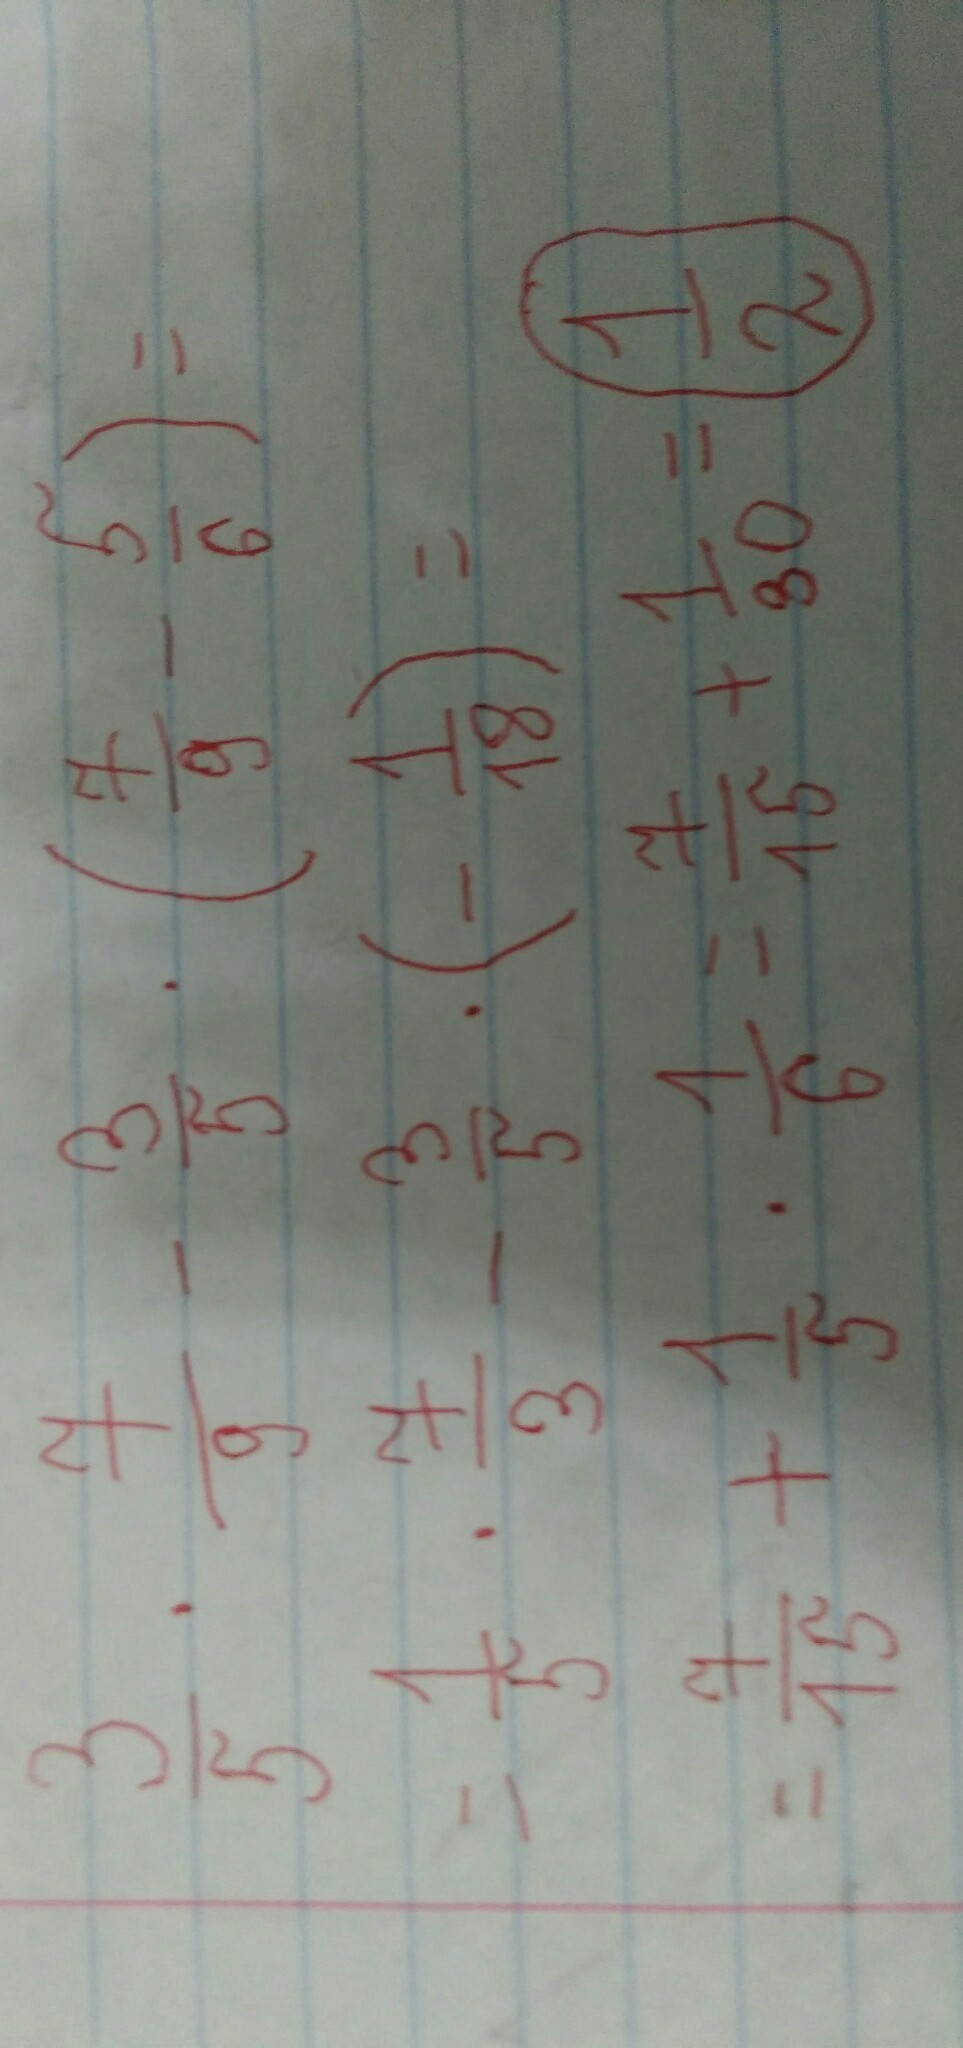 3/5 · 7/9 - 3/5 · (7/9 - 5/6) =
= 1/5 · 7/3 - 3/5 · (- 1/18) =
= 7/15 + 1/5 · 1/6 = 7/15 + 1/30 = 1/2